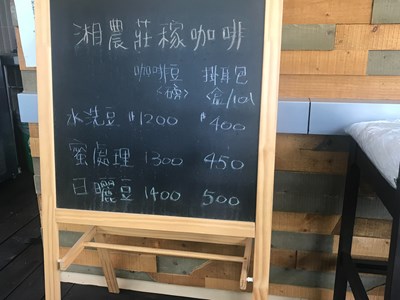 湘農莊稼咖啡
咖啡豆 掛耳包
<磅> <盒/10入
水洗豆 $1200 $400
蜜處理 1300 450
日曬豆 1400 500